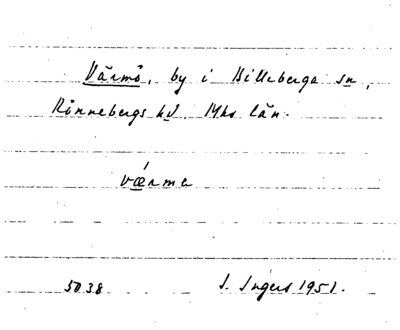 Värmö, by i Billeberga sn,
Rönnebergs hd. Mhs län.
vǽrma
5038 I. Ingers 1951.